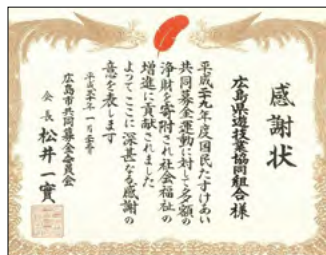 感謝状
広島県遊技業協同組合様
平成二十九年度国民たすけあい
共同募金運動に対して多額の
浄財を寄附され社会福祉の
増進に貢献されました
よってここに深甚なる感謝の
意を表します
平成三十年一月
広島市共同募金委員会
会長 松井一實